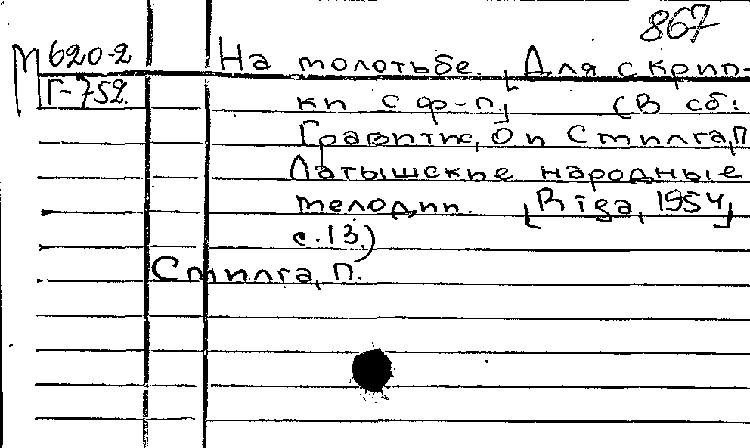 867
М 620-2
Г-752
На молотьбе. [Для скрип-
ки с ф-п.] (В сб.:
Гравитис, О и Стилга, П
Латышские народные
мелодии. [Riga, 1954,]
с. 13.)
Стилга, П.